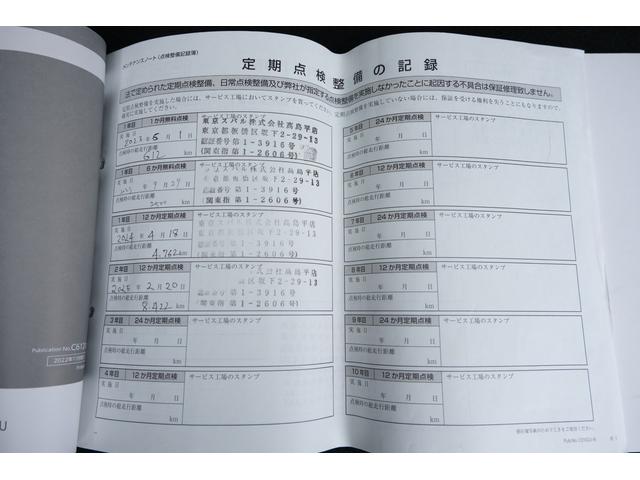 メンテナンスノート(点検整備記録簿)
定期点検整備の記録
法で定められた定期点検整備、日常点検整備及び弊社が指定する点検整備を実施しなかったことに起因する不具合は保証修理致しません。
定期点検整備を実施した場合には、サービス工場においてスタンプを貰ってください。
1年目 1か月無料点検
サービス工場のスタンプ
実施日
2023年5月1日
点検時の総走行距離
612 km
東京スバル株式会社高島平店
東京都板橋区坂下2-29-13
認証番号第1-3916号
(関東指第1-2606号)
1年目 6か月無料点検
サービス工場のスタンプ
実施日
年 月 日
点検時の総走行距離
km
東京都板橋区坂下2-29-13
認証番号第1-3916号
(関東指第1-2606号)
1年目 12か月定期点検
サービス工場のスタンプ
実施日
2024年4月18日
点検時の総走行距離
4,762 km
2-29-13
第1-3916号
第1-2606号)
2年目 12か月定期点検
サービス工場のスタンプ
実施日
2025年2月20日
点検時の総走行距離
8,422 km
株式会社高島平店
区坂下2-29-13
認証番号第1-3916号
(関東指第1-2606号)
3年目 24か月定期点検
サービス工場のスタンプ
実施日
年 月 日
点検時の総走行距離
km
4年目 12か月定期点検
サービス工場のスタンプ
実施日
年 月 日
点検時の総走行距離
km
5年目 24か月定期点検
サービス工場のスタンプ
実施日
年 月 日
点検時の総走行距離
km
6年目 12か月定期点検
サービス工場のスタンプ
実施日
年 月 日
点検時の総走行距離
km
7年目 24か月定期点検
サービス工場のスタンプ
実施日
年 月 日
点検時の総走行距離
km
8年目 12か月定期点検
サービス工場のスタンプ
実施日
年 月 日
点検時の総走行距離
km
9年目 24か月定期点検
サービス工場のスタンプ
実施日
年 月 日
点検時の総走行距離
km
10年目 12か月定期点検
サービス工場のスタンプ
実施日
年 月 日
点検時の総走行距離
km
Publication No.